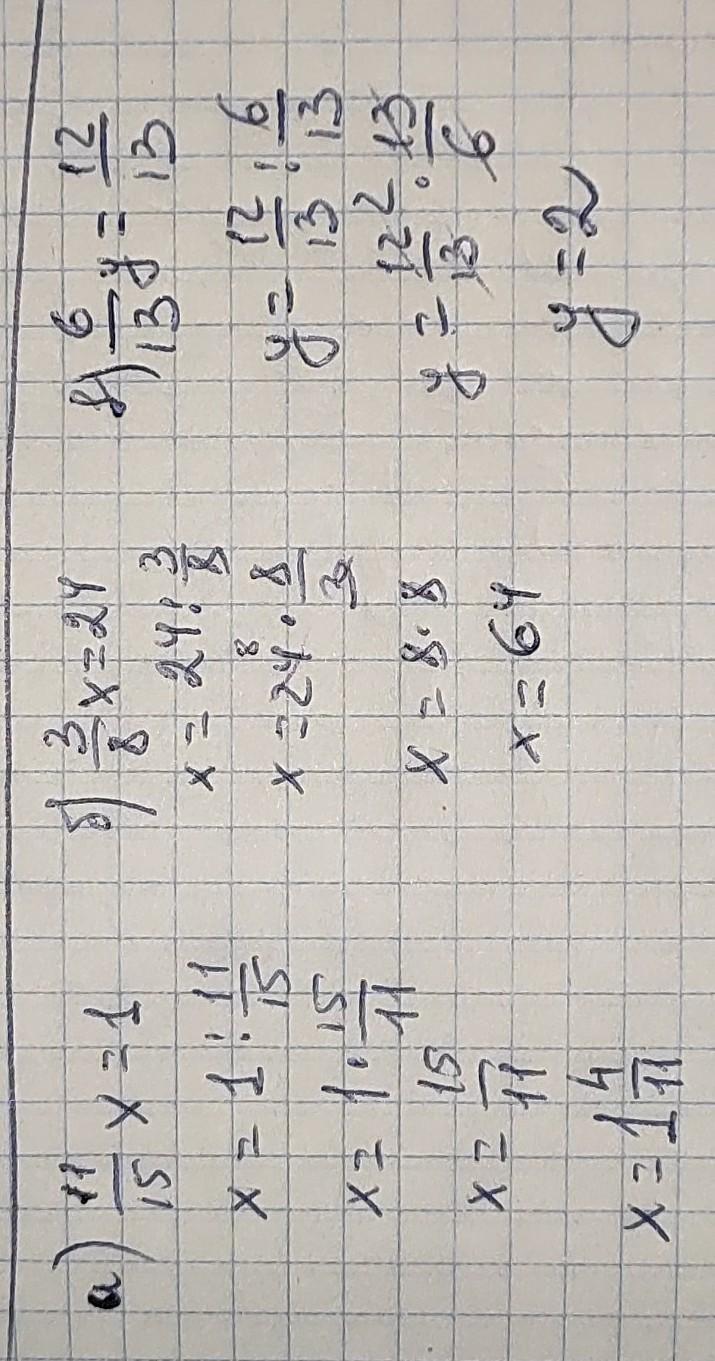 а) 11/15 x = 1
x = 1 : 11/15
x = 1 · 15/11
x = 15/11
x = 1 4/11
б) 3/8 x = 24
x = 24 : 3/8
x = 24 ⁸ · 8/3
x = 8 · 8
x = 64
в) 6/13 y = 12/13
y = 12/13 : 6/13
y = 12 ²/13 · 13/6
y = 2